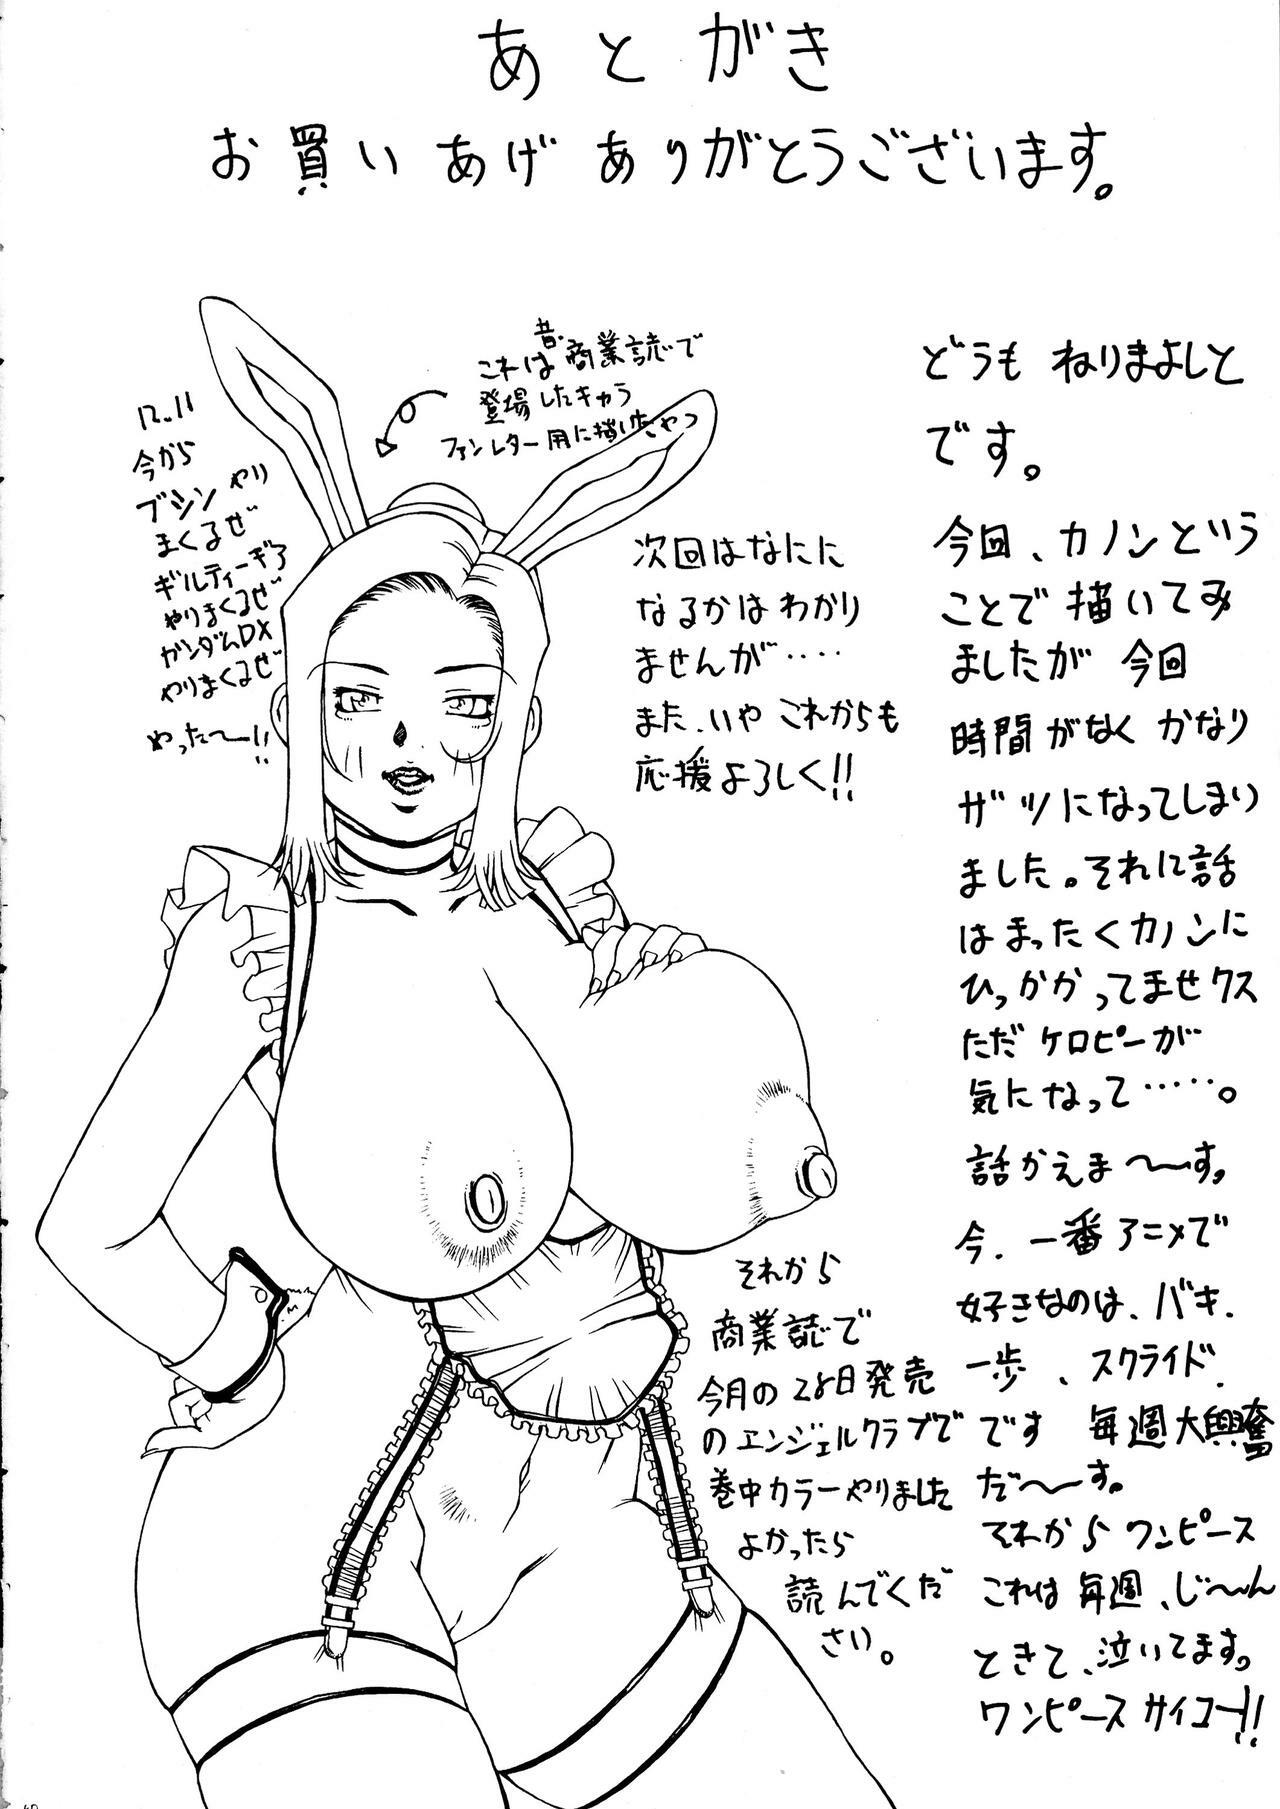 あとがき
お買いあげありがとうございます。
どうも ねりまよしと
です。
今回、カノンという
ことで描いてみ
ましたが 今回
時間がなく かなり
ザツになってしまい
ました。それに話
はまったくカノンに
ひっかかってませクス
ただケロピーが
気になって……。
話かえま〜〜す。
今、一番アニメで
好きなのは、バキ、
一歩、スクライド、
です 毎週大興奮
だ〜〜す。
それから ワンピース
これは 毎週、じ〜〜ん
ときて、泣いてます。
ワンピースサイコー!!
昔、
これは 商業誌で
登場したキャラ
ファンレター用に描いたやつ
次回はなにに
なるかはわかり
ませんが‥‥
また、いや これからも
応援よろしく!!
12.11
今から
ブシン やり
まくるぜ
ギルティーギア
やりまくるぜ
ガンダムDX
やりまくるぜ
やった〜!!
それから
商業誌で
今月の28日発売
のエンジェルクラブで
巻中カラーやりました
よかったら
読んでくだ
さい。